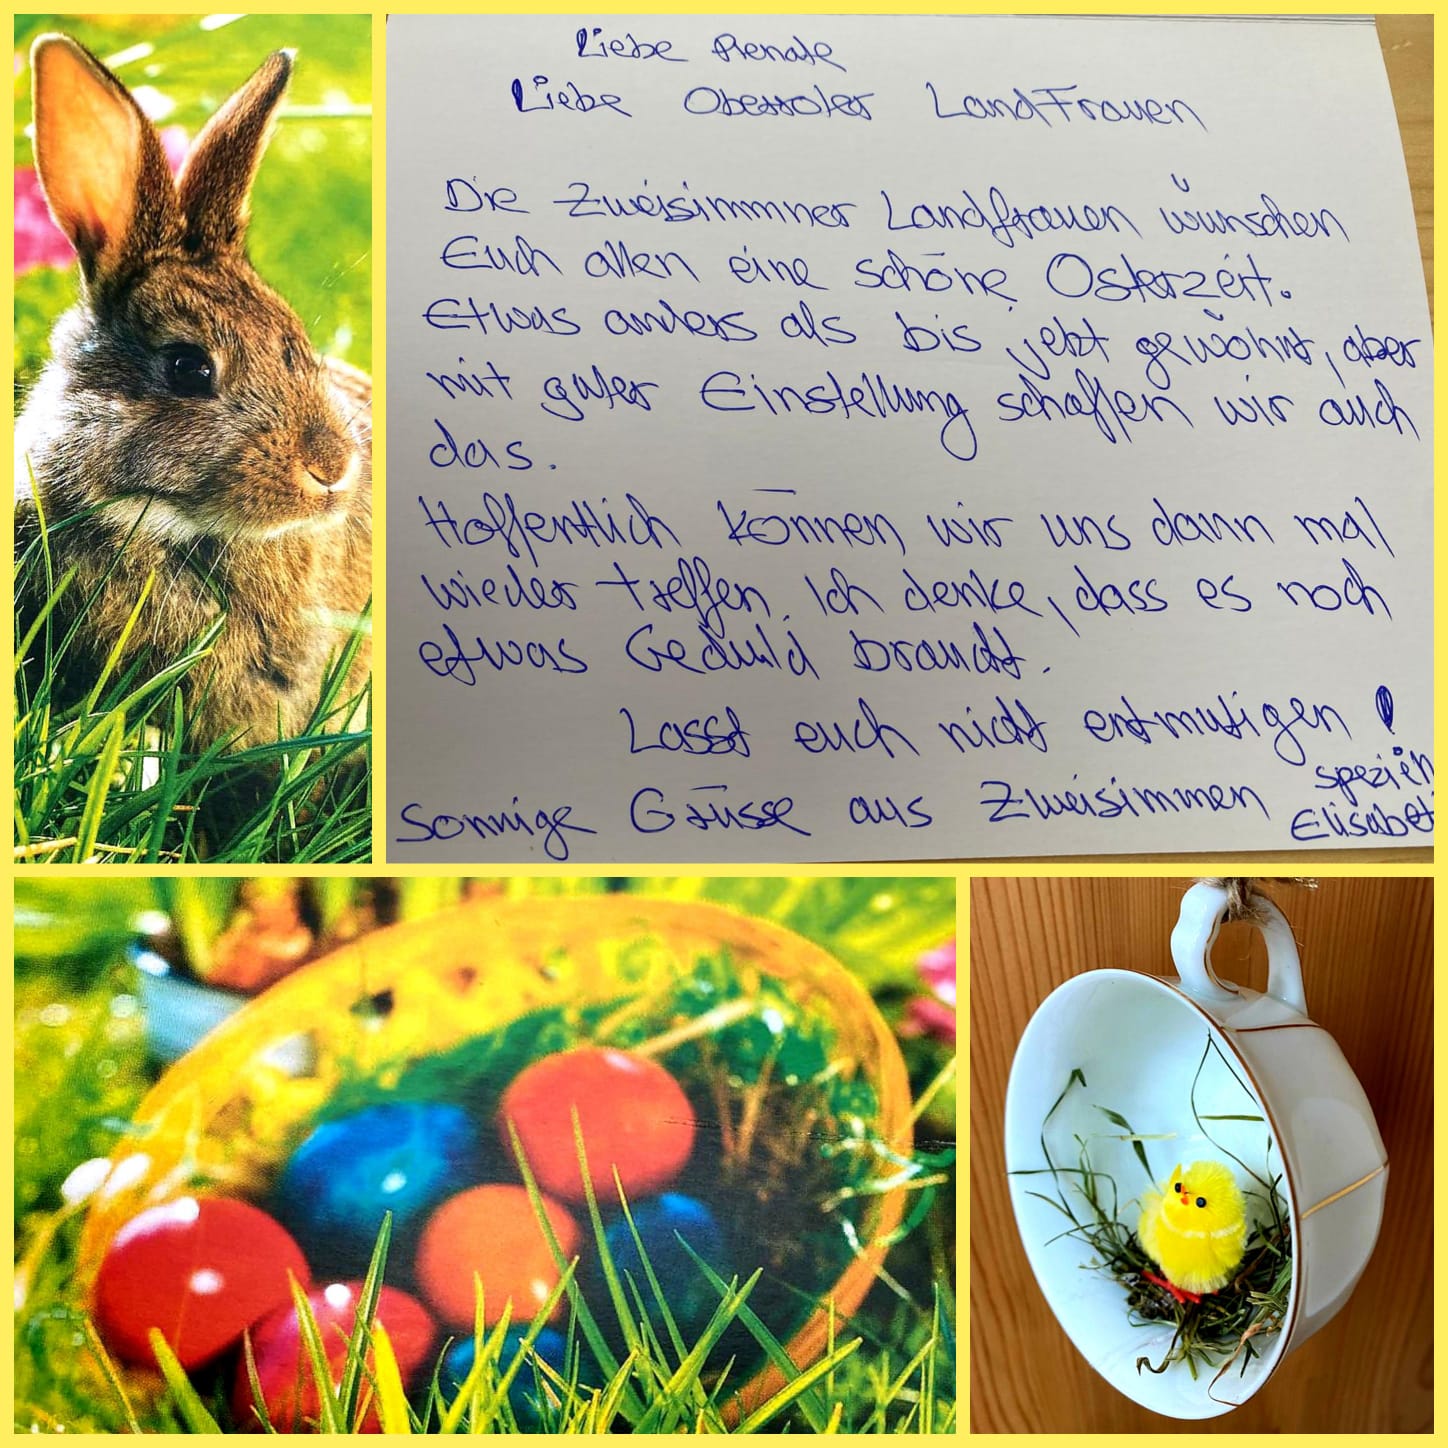 Liebe Renate
Liebe Obertoler LandFrauen
Die Zweisimmner Landfrauen wünschen
Euch allen eine schöne Osterzeit.
Etwas anders als bis jetzt gewöhnt, aber
mit guter Einstellung schaffen wir auch
das.
Hoffentlich können wir uns dann mal
wieder treffen. Ich denke, dass es noch
etwas Geduld braucht.
Lasst euch nicht entmutigen!
Sonnige Grüsse aus Zweisimmen
speziell
Elisabet